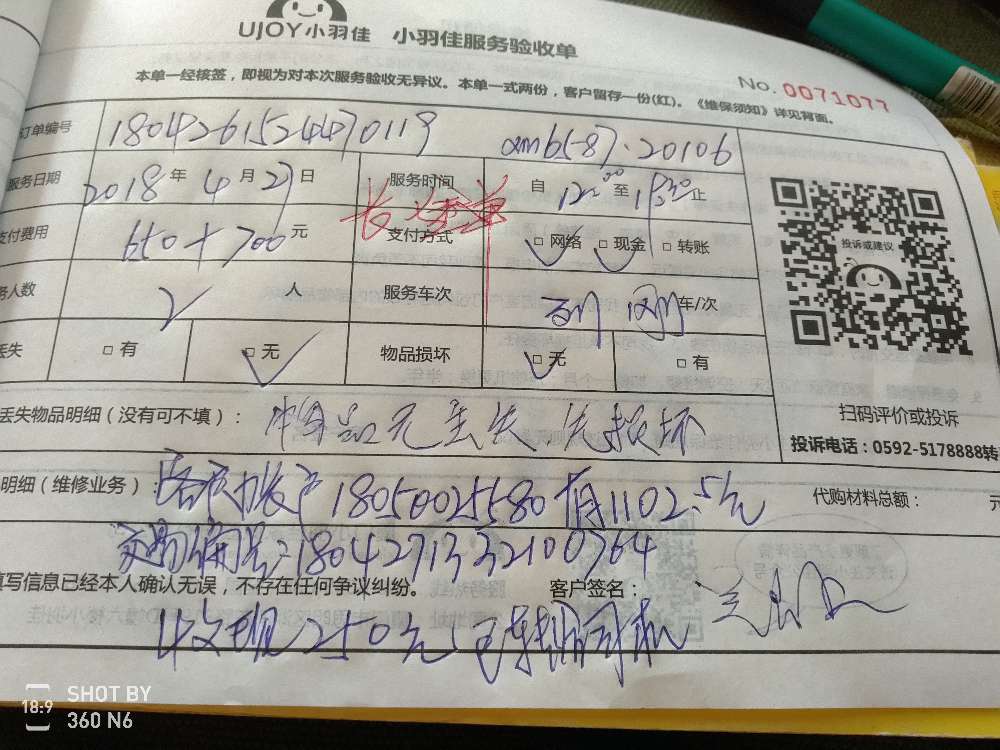 UJOY小羽佳 小羽佳服务验收单
本单一经核签，即视为对本次服务验收无异议。本单一式两份，客户留存一份(红)。《维保须知》详见背面。
No. 0071077
订单编号 18042615244470119
服务日期 2018年4月27日 服务时间 自 12:00 至 止
支付费用 650+700元 支付方式 □网络 □现金 □转账
务人数 2人 服务车次 车/次
丢失 □有 □无 物品损坏 □无 □有
丢失物品明细（没有可不填）： 物品无丢失 无损坏
明细（维修业务）： 客户账户18050025580有1102.5元 代购材料总额： 元
交易编号：18042713332100764
填写信息已经本人确认无误，不存在任何争议纠纷。 客户签名：
收现250元已转给司机
投诉或建议
扫码评价或投诉
投诉电话：0592-5178888转
SHOT BY
360 N6
18:9